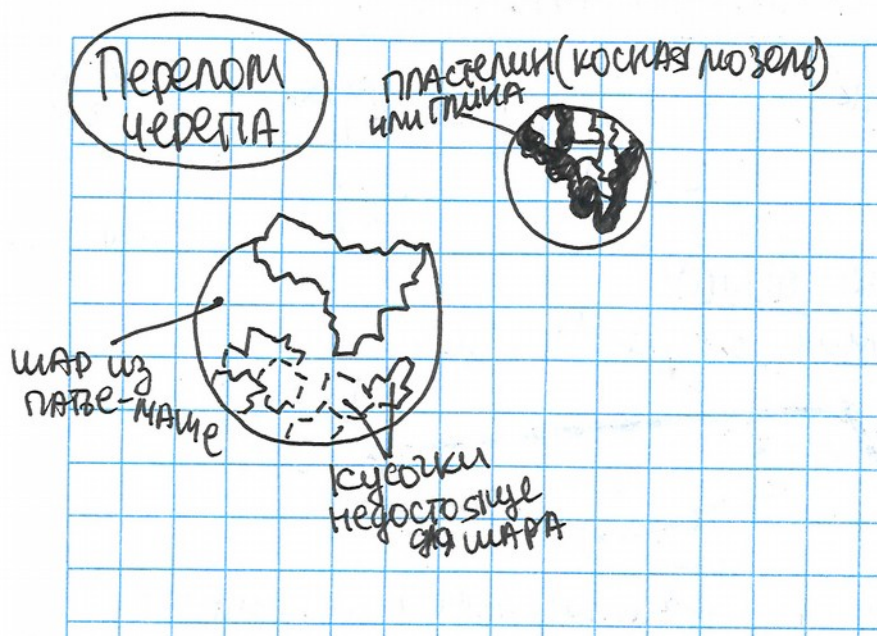 Перелом
черепа
пластелин (косная мозоль)
или глина
шар из
папье-маше
кусочки
недостоящие
для шара